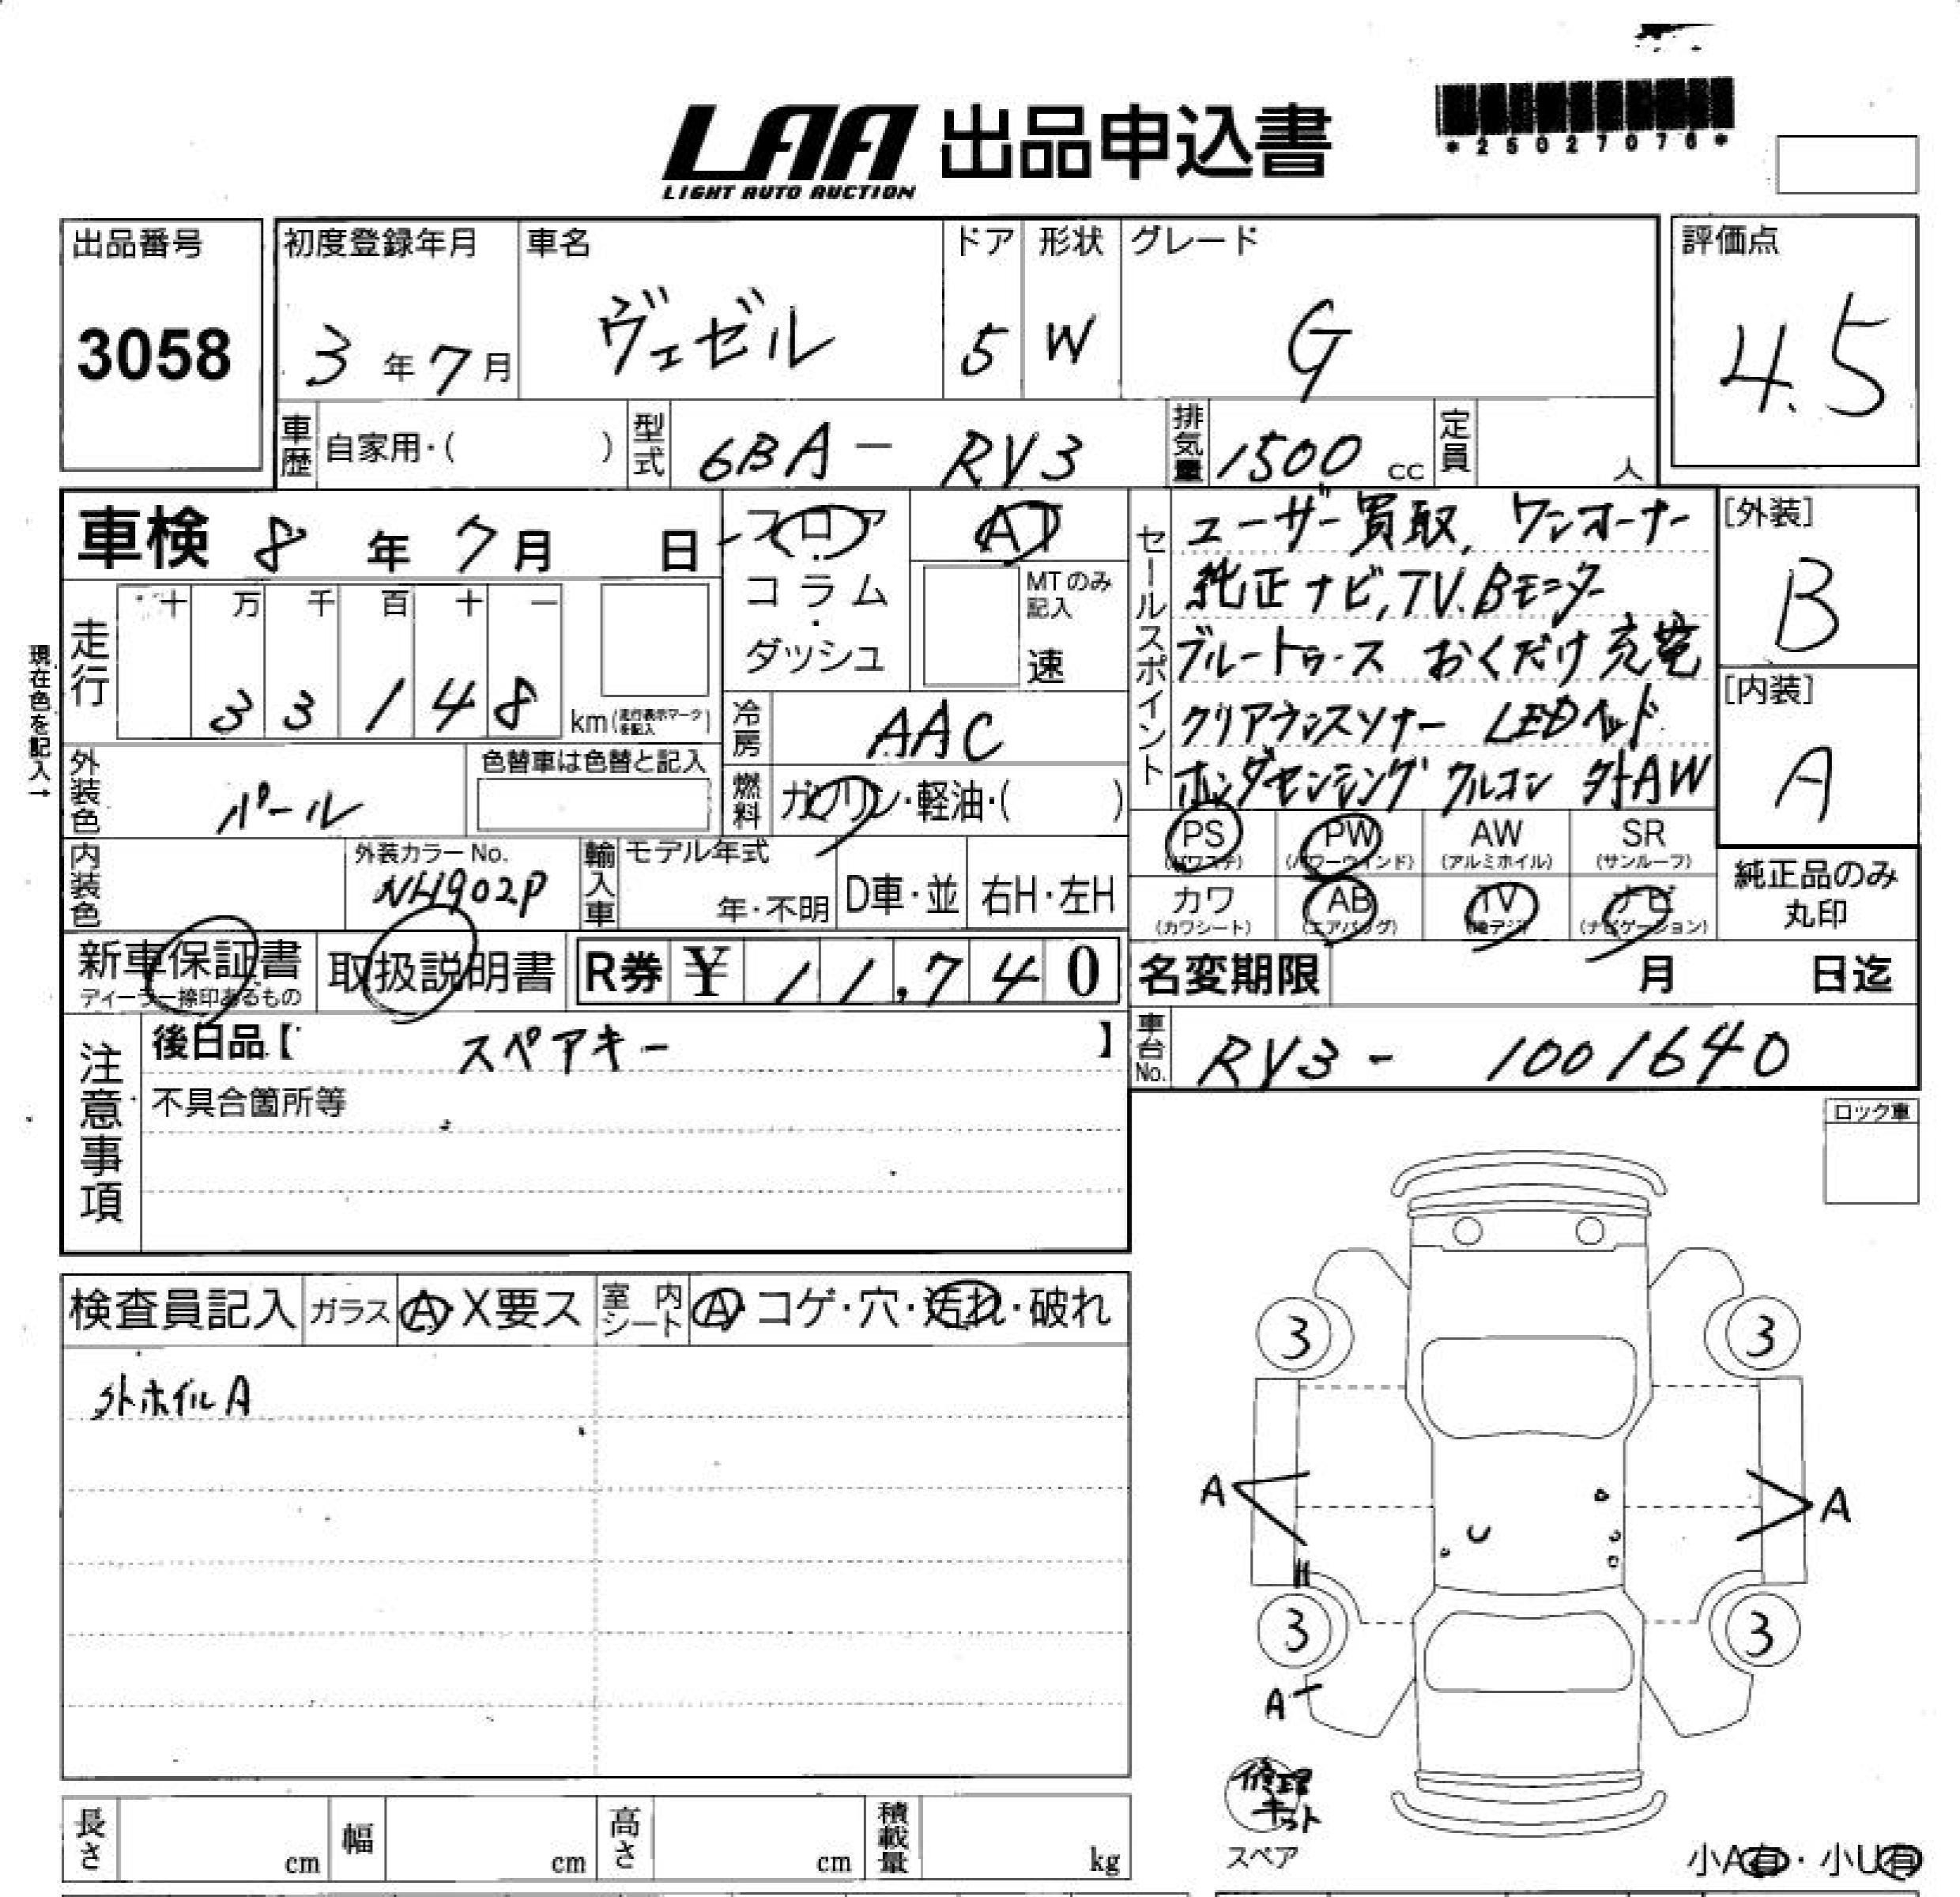 LAA 出品申込書
LIGHT AUTO AUCTION
*25027076*
出品番号
3058
初度登録年月
3年7月
車名
ヴェゼル
ドア
5
形状
W
グレード
G
評価点
4.5
車歴 自家用・( )
型式 6BA - RV3
排気量 1500 cc
定員 人
車検 8年7月 日
フロア・コラム・ダッシュ
AT
MTのみ記入
速
セールスポイント
ユーザー買取, ワンオーナー
純正ナビ, TV. Bモニター
ブルートゥース おくだけ充電
クリアランスソナー LEDヘッド
ホンダセンシング クルコン 外AW
[外装]
B
[内装]
A
現在色を記入→
走行
十 万 千 百 十 一
3 3 1 4 8 km(走行表示マークを記入)
冷房 AAC
外装色 パール
色替車は色替と記入
燃料 ガソリン・軽油・( )
内装色
外装カラーNo.
NH902P
輸入車
モデル年式
年・不明
D車・並
右H・左H
PS (パワステ)
PW (パワーウインド)
AW (アルミホイル)
SR (サンルーフ)
カワ (カワシート)
AB (エアバッグ)
TV (地デジ)
ナビ (ナビゲーション)
純正品のみ
丸印
新車保証書
ディーラー捺印あるもの
取扱説明書
R券 ¥ 11,740
名変期限 月 日迄
注意事項
後日品【 スペアキー 】
不具合箇所等
車台No. RV3 - 1001640
ロック車
検査員記入
ガラス A・X要ス
室内シート A・コゲ・穴・汚れ・破れ
外ホイルA
3 3
A A
3 3
A
修理キット
スペア
長さ cm
幅 cm
高さ cm
積載量 kg
小A有・小U有